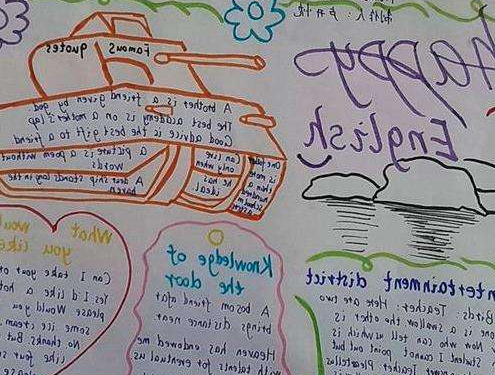 制作人:
Happy
English
Famous quotes
A brother is a friend given by god
The best academy is on a mother's lap
Good advice is the best gift to a friend
A picture is a poem without
words
A dear ship stands long in the
haven
One can live
only when
he has
ideal
One father
is more
than a
hundred
school
masters
What would
you like
Can I take your or
Yes I'd like a hot
please Would you
some ice cream
No thanks. But
like four
please
Knowledge of
the door
A bosom friend afar
brings distance near
Heaven has endowed me
with talents for eventual us
ntertainment district
Birds: Teacher: Here are two
one is a swallow the other is
Now who can tell us which is
Student I cannot point out but
Teacher: